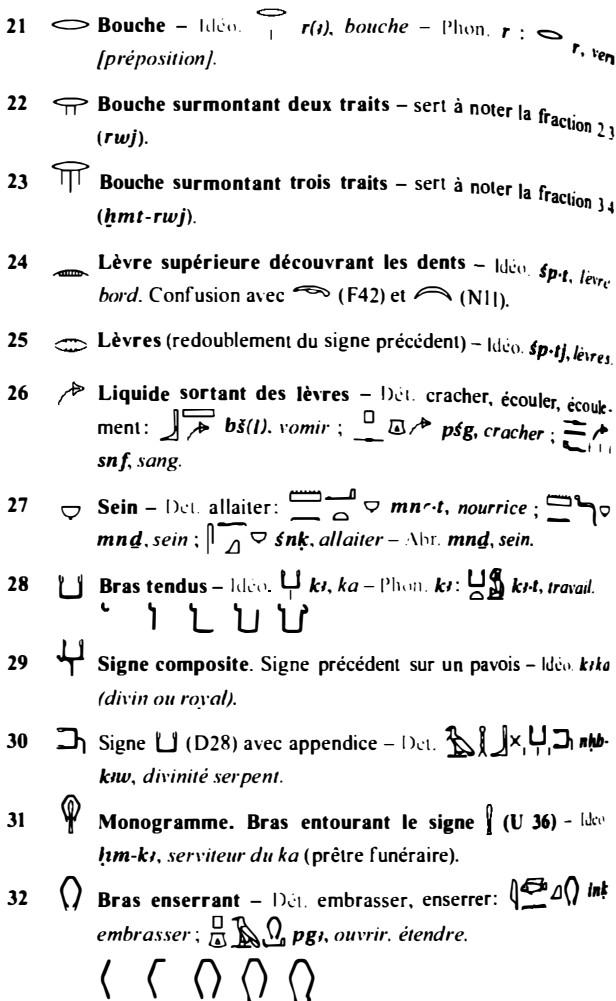 21 Bouche – Idéo. r(ꜣ), bouche – Phon. r : r, vers
[préposition].
22 Bouche surmontant deux traits – sert à noter la fraction 2 3
(rwj).
23 Bouche surmontant trois traits – sert à noter la fraction 3 4
(ḫmt-rwj).
24 Lèvre supérieure découvrant les dents – Idéo. śp·t, lèvre
bord. Confusion avec (F42) et (N11).
25 Lèvres (redoublement du signe précédent) – Idéo. śp·tj, lèvres.
26 Liquide sortant des lèvres – Dét. cracher, écouler, écoule-
ment : bš(ꜣ). vomir ; pśg, cracher ;
snf, sang.
27 Sein – Det. allaiter : mnꜥ·t, nourrice ;
mnḏ, sein ; śnḳ, allaiter – Abr. mnḏ, sein.
28 Bras tendus – Idéo. kꜣ, ka – Phon. kꜣ : kꜣ·t, travail.
29 Signe composite. Signe précédent sur un pavois – Idéo. kꜣ ka
(divin ou royal).
30 Signe (D28) avec appendice – Det. nḥb-
kꜣw, divinité serpent.
31 Monogramme. Bras entourant le signe (U 36) – Ideo
ḥm-kꜣ, serviteur du ka (prêtre funéraire).
32 Bras enserrant – Dét. embrasser, enserrer: inḳ
embrasser ; pgꜣ, ouvrir. étendre.